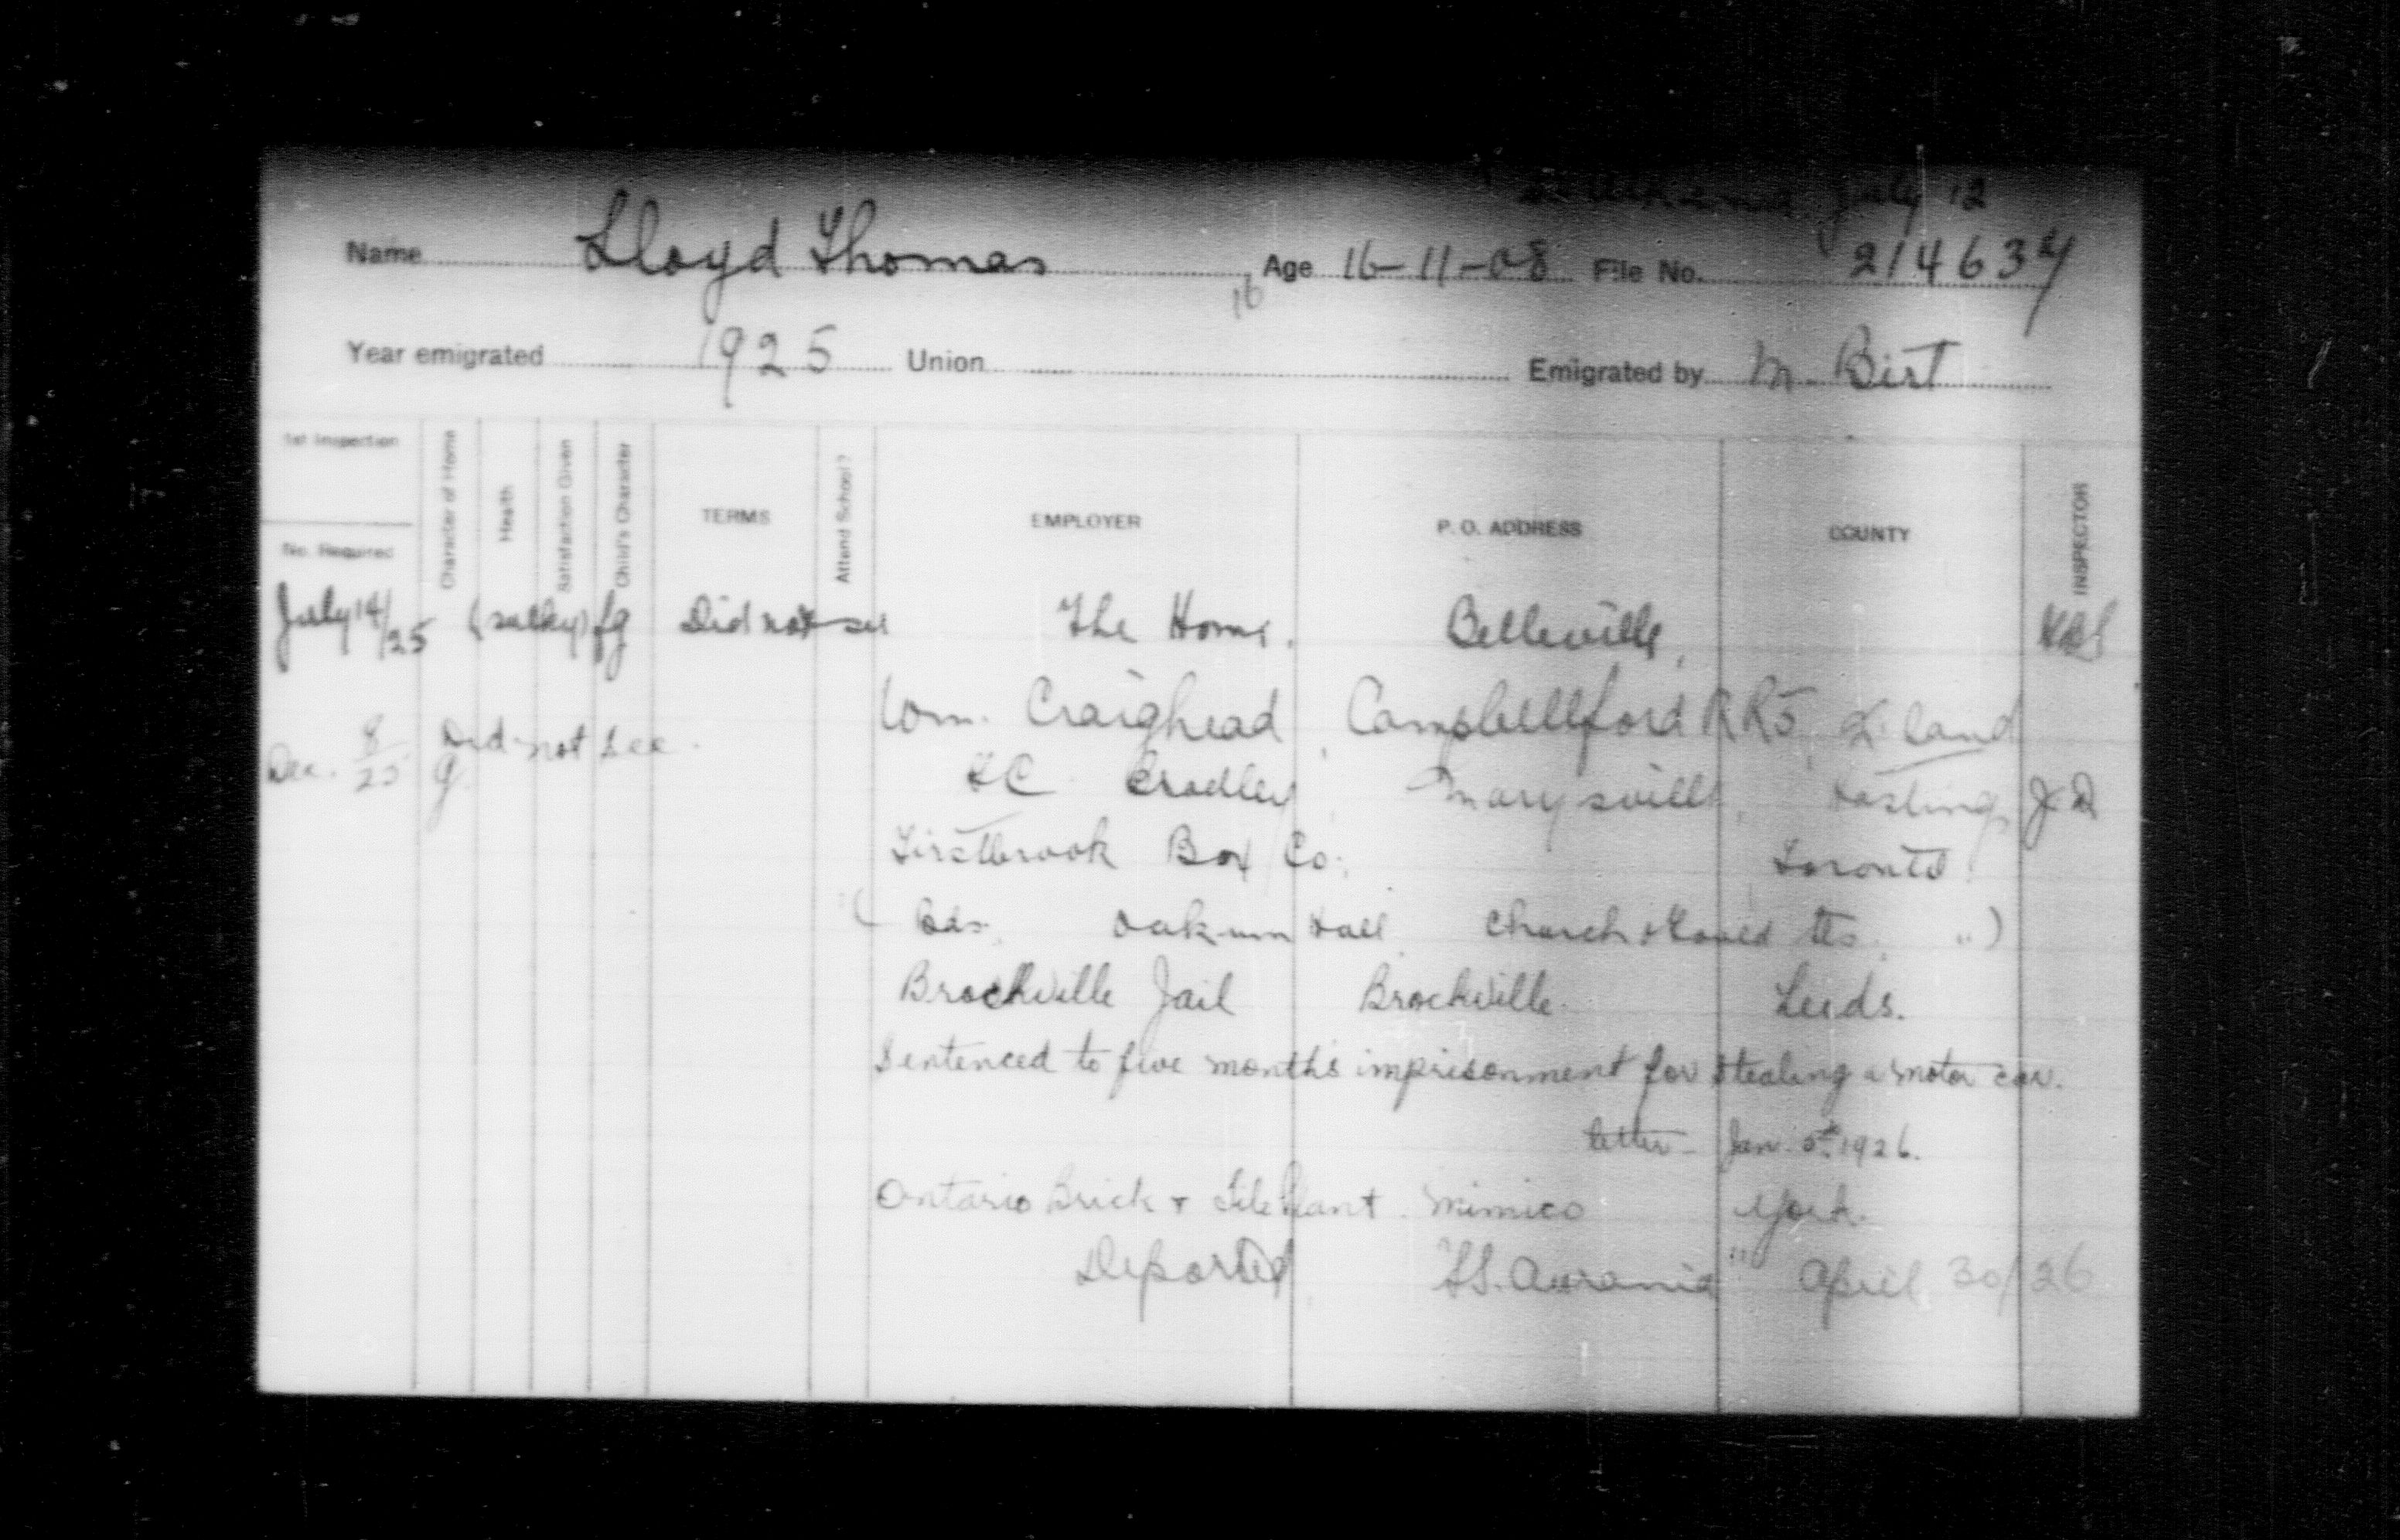 July 12
Name Lloyd Thomas Age 16-11-08 File No. 214634
16
Year emigrated 1925 Union Emigrated by M. Birt
1st Inspection
No. Required
Character of Home
Health
Satisfaction Given
Child's Character
TERMS
Attend School?
EMPLOYER
P. O. ADDRESS
COUNTY
INSPECTOR
July 14/25 (sulky) fg Did not see The Home. Belleville,
Wm. Craighead, Campbellford RR5, N'land
Dec. 8/25 g Did not see.
Bradley, Marysville, Hastings J.D.
Firstbrook Box Co. Toronto.
( Ads. Oakum Hall Church & Gould Sts. " )
Brockville Jail Brockville. Leeds.
Sentenced to five months imprisonment for stealing a motor car.
letter - Jan. 5th 1926.
Ontario Brick & Tile Plant. Mimico York.
Deported, SS. Aurania" April 30/26